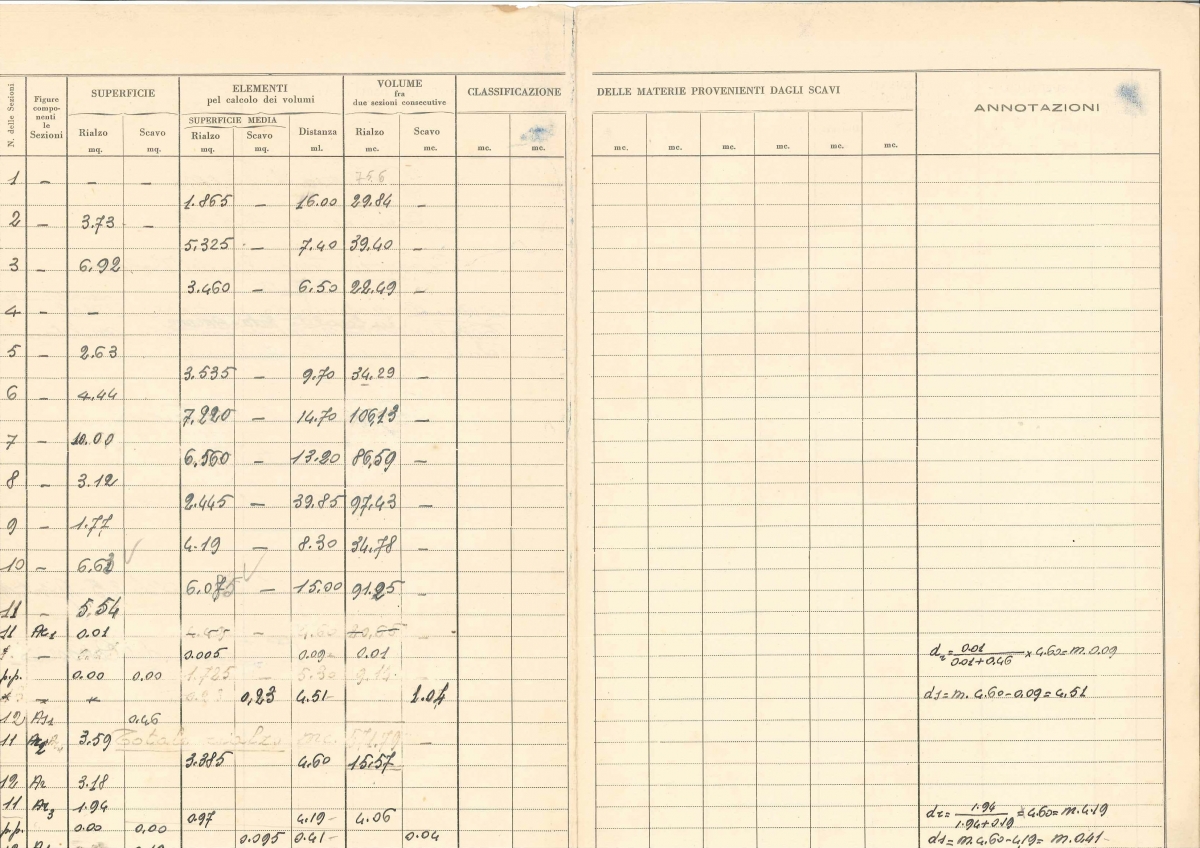 N. delle Sezioni
Figure componenti le Sezioni
SUPERFICIE
Rialzo mq.
Scavo mq.
ELEMENTI
pel calcolo dei volumi
SUPERFICIE MEDIA
Rialzo mq.
Scavo mq.
Distanza ml.
VOLUME
fra
due sezioni consecutive
Rialzo mc.
Scavo mc.
CLASSIFICAZIONE
mc. mc.
DELLE MATERIE PROVENIENTI DAGLI SCAVI
mc. mc. mc. mc. mc. mc.
ANNOTAZIONI
75.6
1 – – –
1.865 – 16.00 29.84 –
2 – 3.73 –
5.325 – 7.40 39.40 –
3 – 6.92
3.460 – 6.50 22.49 –
4 – –
5 – 2.63
3.535 – 9.70 34.29 –
6 – 4.44
7,220 – 14.70 106,13 –
7 – 10.00
6,560 – 13.20 86,59 –
8 – 3.12
2.445 – 39.85 97.43 –
9 – 1.77
4.19 – 8.30 34.78 –
10 – 6.62
6.075 – 15.00 91.25 –
11 – 5.54
11 Ar1 0.01 4.60 –
– 0.005 0.09 0.01
dr = 0.01 / 0.01+0.46 x 4.60 = m. 0.09
p.p. 0.00 0,00 1.725 5.30
0,23 4.51 1.04
ds = m. 4.60 - 0.09 = 4.51
12 As1 0.46
11 3.59 Totale rialzo mc. –
3.385 4.60 15.57
12 Ar 3.18
11 Ar3 1.94
0.97 4.19 4.06
dr = 1.94 / 1.94+0.19 = 4.60 = m. 4.19
p.p. 0.00 0,00
0.095 0.41 0.04
ds = m. 4.60 - 4.19 = m. 0.41